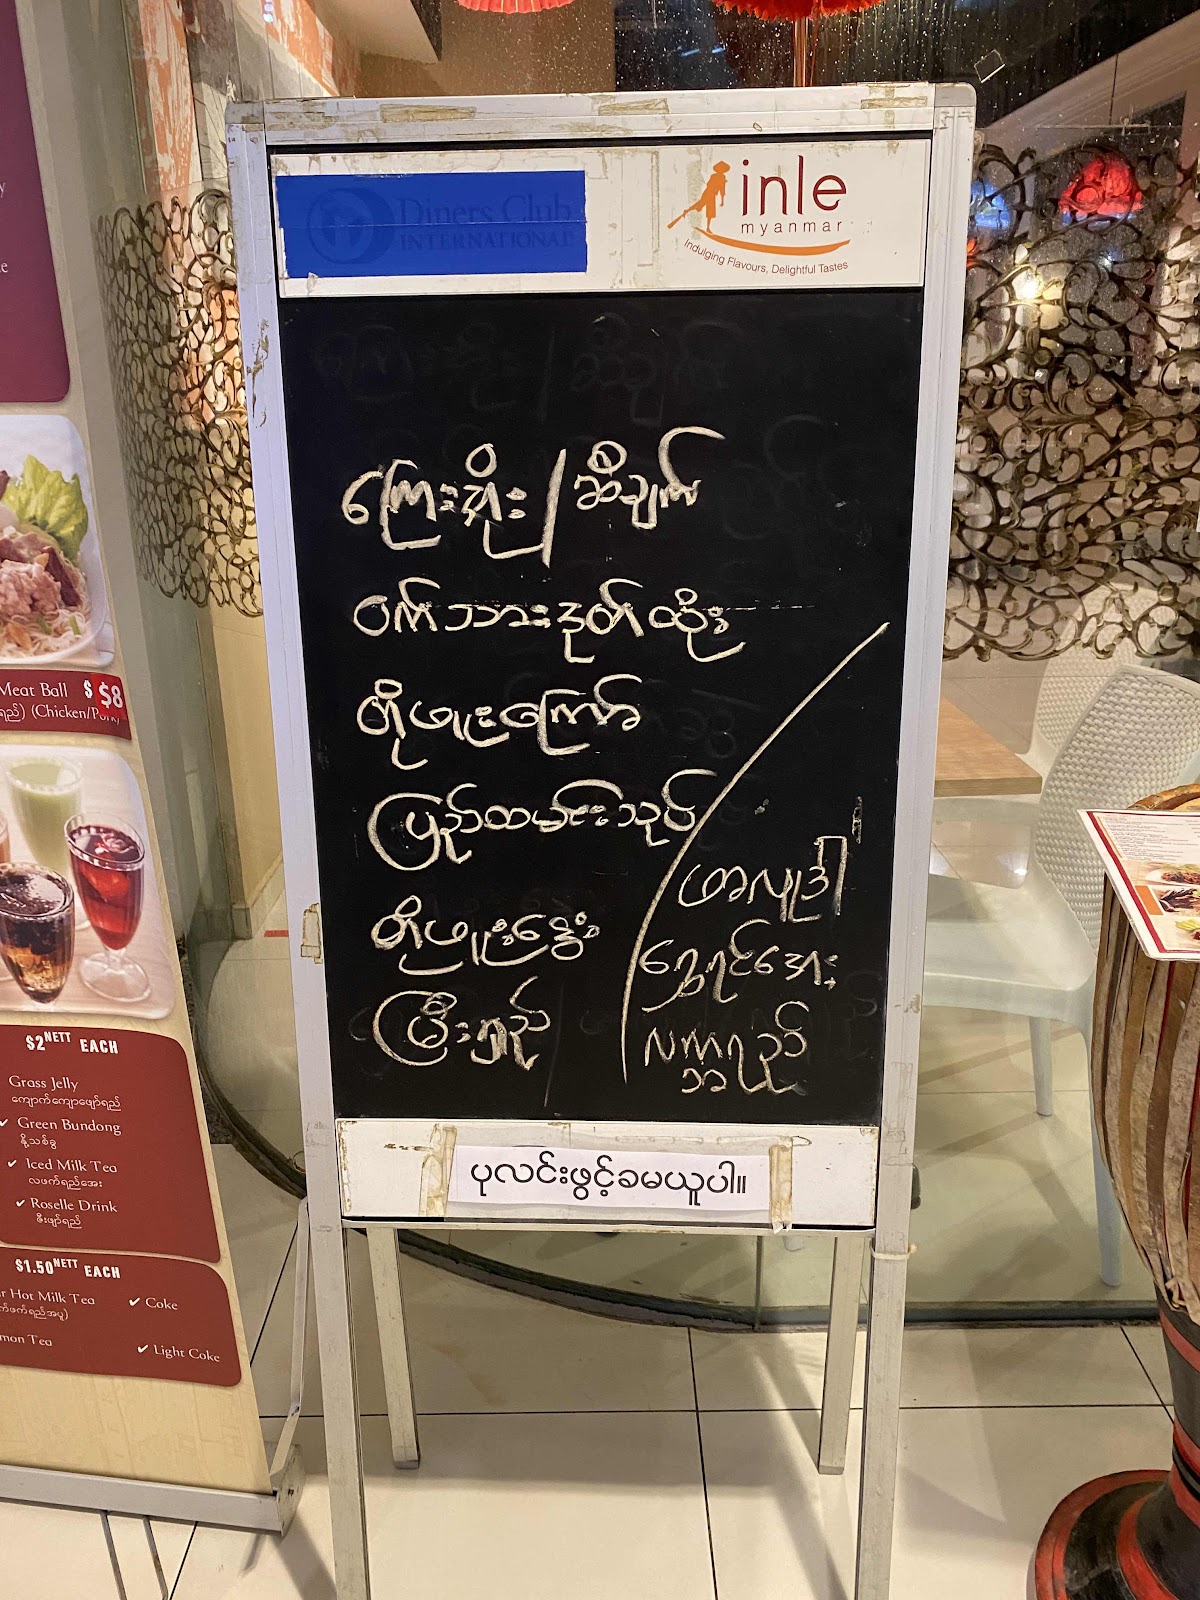 Diners Club
INTERNATIONAL
inle
myanmar
Indulging Flavours, Delightful Tastes
ကြေးအိုး/ဆီချက်
ဝက်သားဒုတ်ထိုး
တိုဖူးကြော်
ပြည်ထမင်းသုပ်
တိုဖူးနွေး
မြီးရှည်
ဖာလူဒါ
ရွှေရင်အေး
လက်ဖက်ရည်
ပုလင်းဖွင့်ခမယူပါ။
Meat Ball $ $8
(Chicken/Pork)
$2 NETT EACH
Grass Jelly
ကျောက်ကျောဖျော်ရည်
✔ Green Bundong
နို့သစ်ခွ
✔ Iced Milk Tea
လဖက်ရည်အေး
✔ Roselle Drink
ဇီးဖျော်ရည်
$1.50 NETT EACH
Hot Milk Tea
✔ Coke
Tea
✔ Light Coke